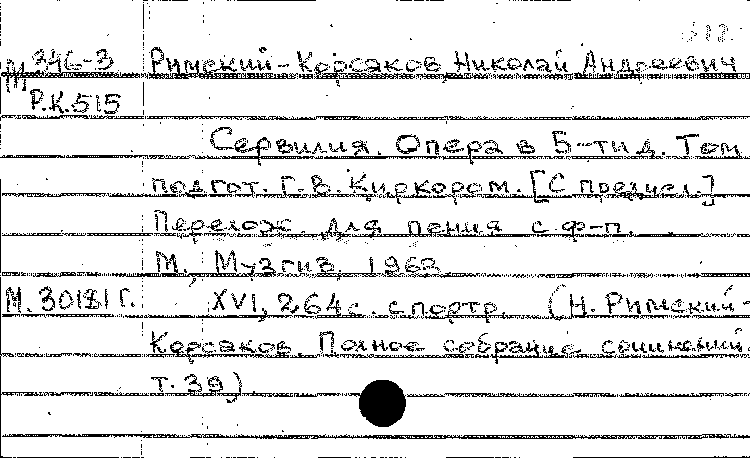 М 346-3 Римский-Корсаков, Николай Андреевич
Р.К.515
Сервилия. Опера в 5-ти д. Том
подгот. Г.В. Киркором. [С предисл.]
Перелож. для пения с ф-п.
М., Музгиз, 1963
М. 30181 г. XVI, 264 с. с портр. (Н. Римский-
Корсаков. Полное собрание сочинений.
т. 39)